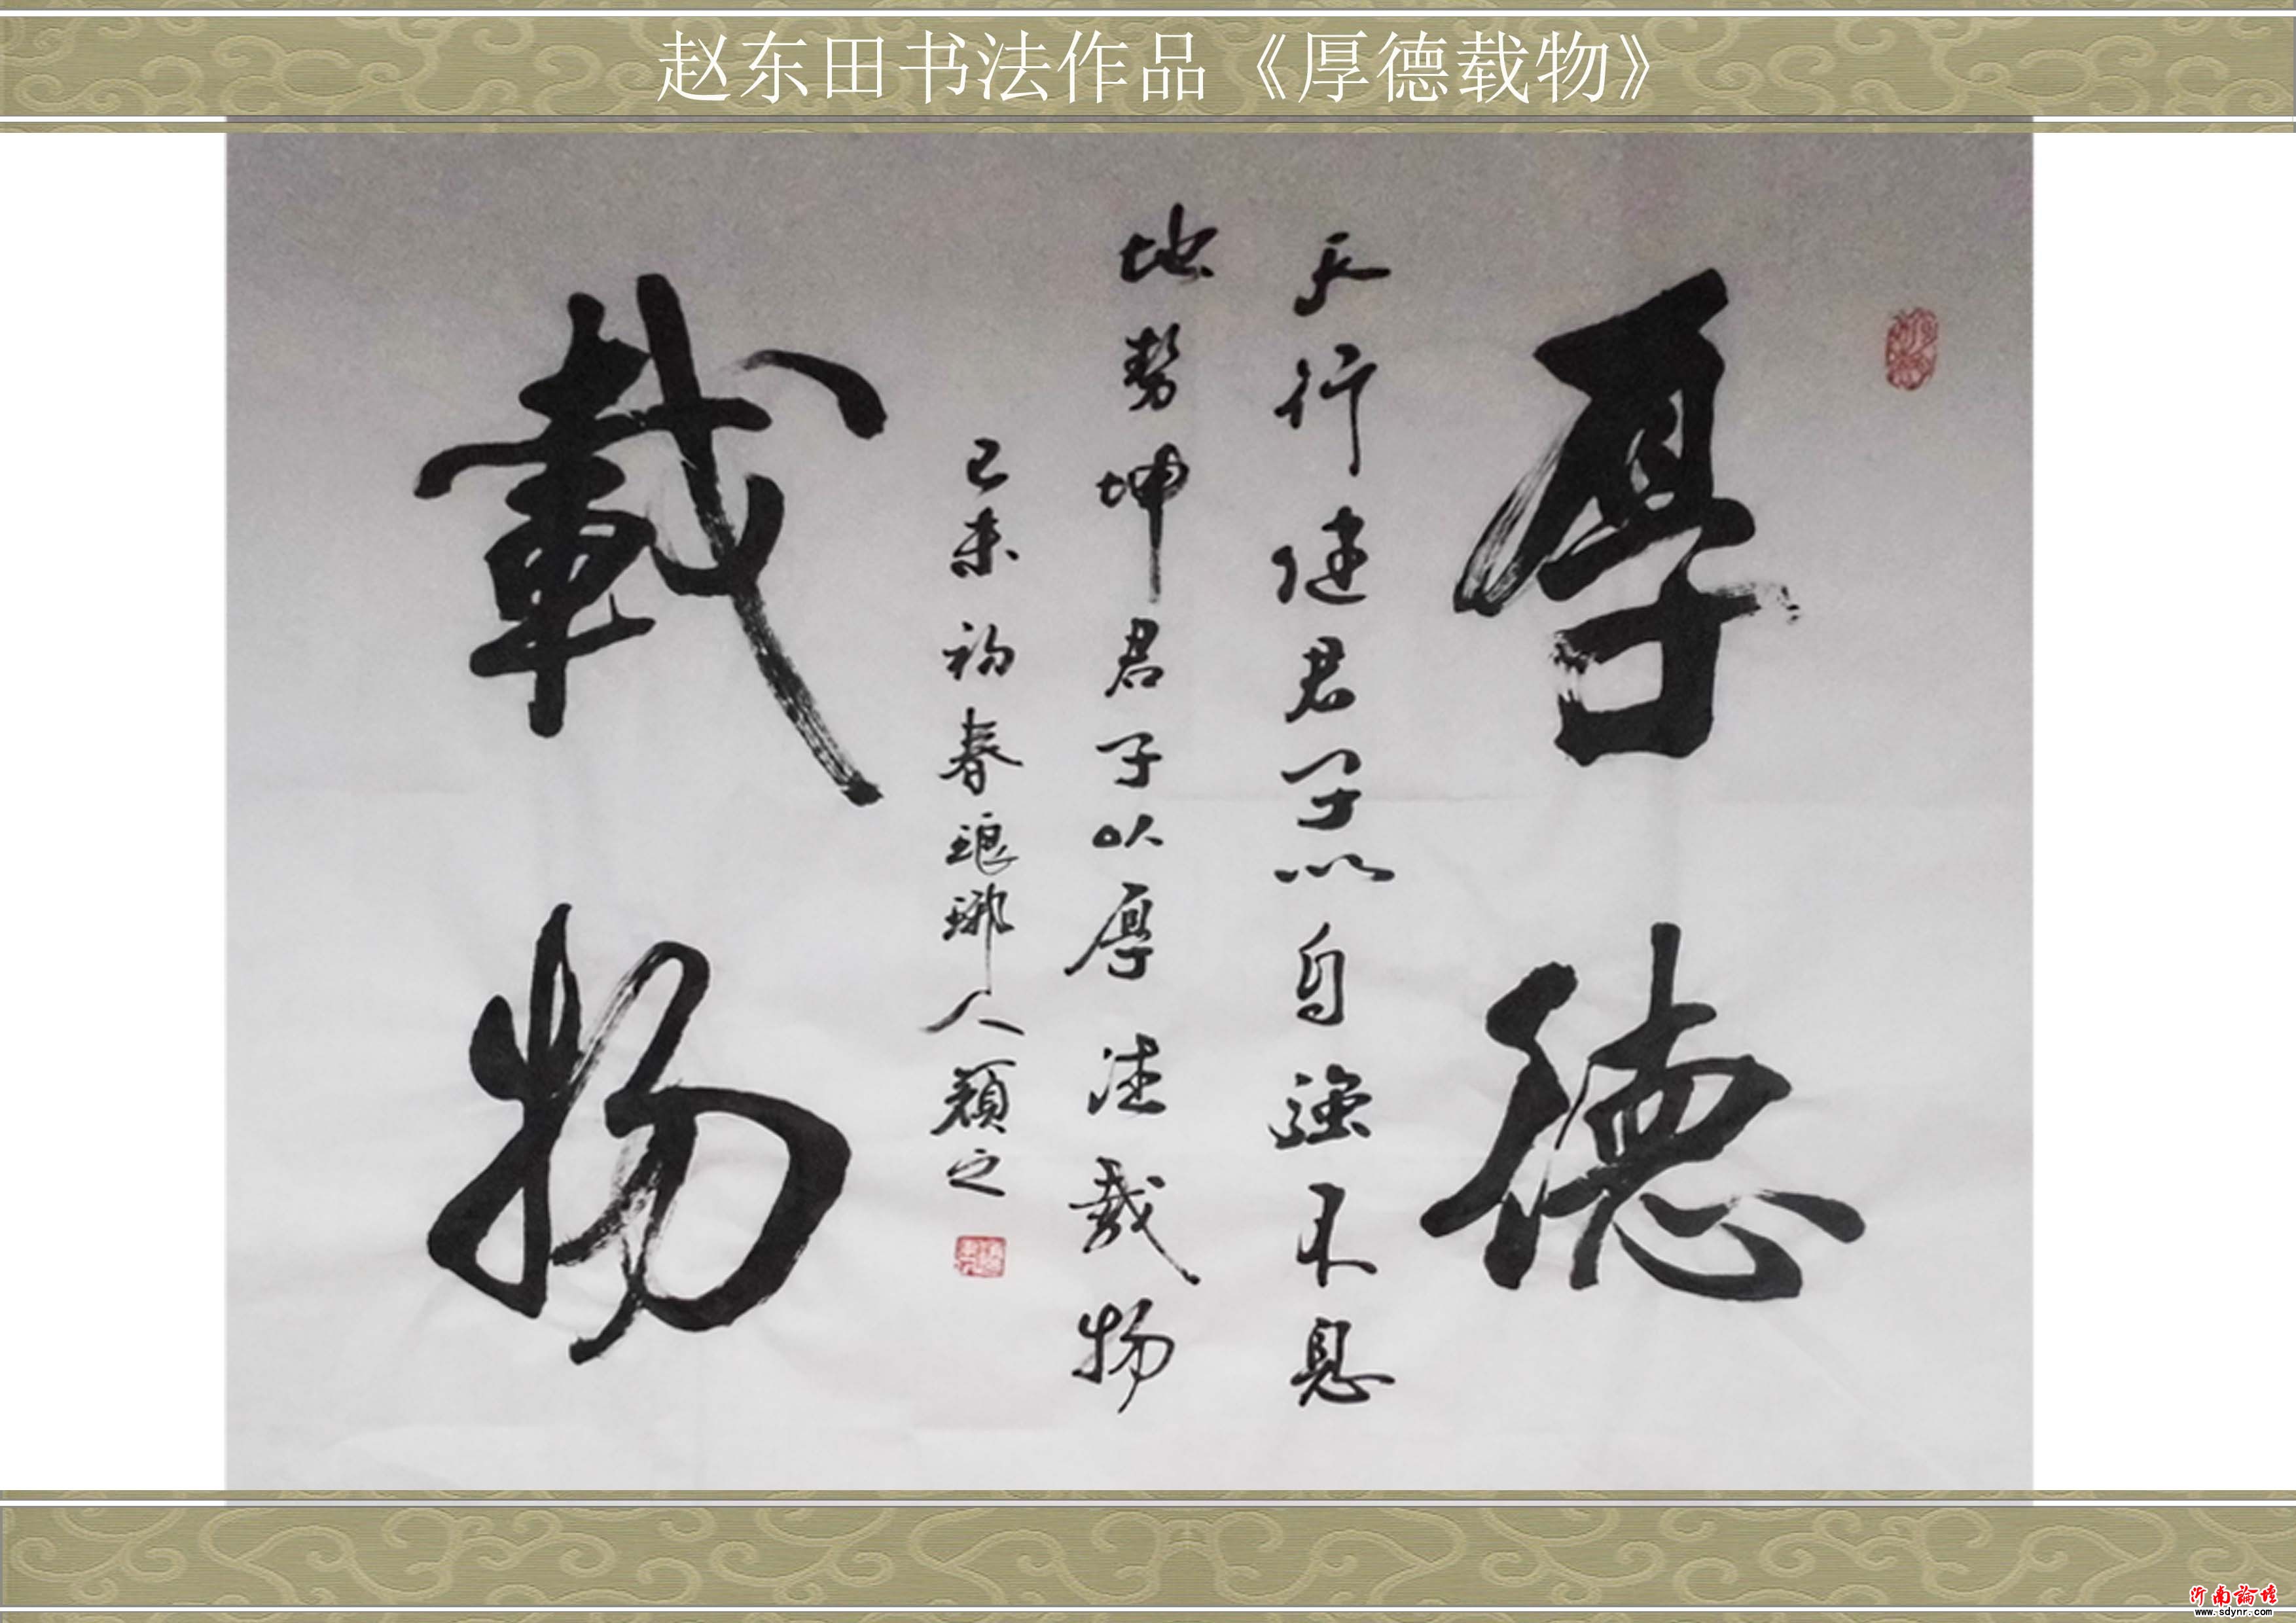 赵东田书法作品《厚德载物》
厚德
天行健君子以自強不息
地勢坤君子以厚德載物
己未初春琅琊人之
載物
沂南論壇
www.sdynr.com